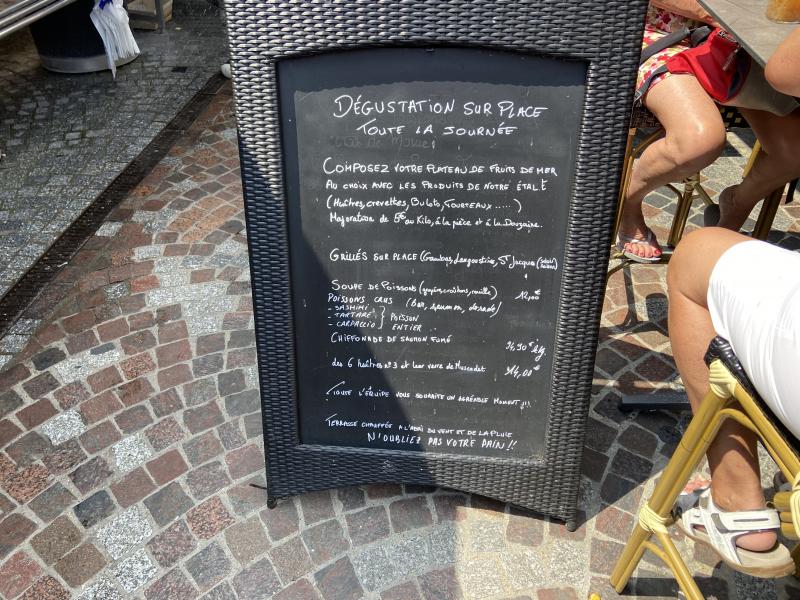 DÉGUSTATION SUR PLACE
TOUTE LA JOURNÉE
COMPOSEZ VOTRE PLATEAU DE FRUITS DE MER
AU CHOIX AVEC LES PRODUITS DE NOTRE ÉTAL
(Huîtres, crevettes, Bulots, TOURTEAUX .....)
Majoration de 5€ au Kilo, à la pièce et à la Douzaine.
GRILLÉS SUR PLACE (Gambas, Langoustine, St Jacques (selon saison)
SOUPE DE POISSONS (gruyère, croûtons, rouille) 12,00€
POISSONS CRUS (Bar, saumon, dorade)
- SASHIMI
- TARTARE } POISSON
- CARPACCIO ENTIER
CHIFFONADE DE SAUMON FUMÉ 74,90€ kg
des 6 huîtres n°3 et leur verre de Muscadet 14,00€
TOUTE L'ÉQUIPE VOUS SOUHAITE UN AGRÉABLE MOMENT !!!
TERRASSE CHAUFFÉE A L'ABRI DU VENT ET DE LA PLUIE
N'OUBLIEZ PAS VOTRE PAIN !!